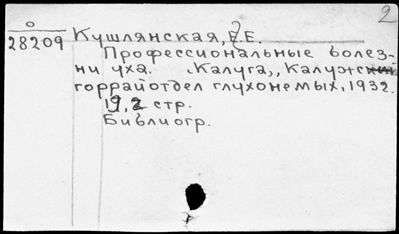 2
о
28209 Кушлянская, Е.Е.
Профессиональные болез-
ни уха. Калуга, Калужский
горрайотдел глухонемых, 1932.
19,2 стр.
Библиогр.